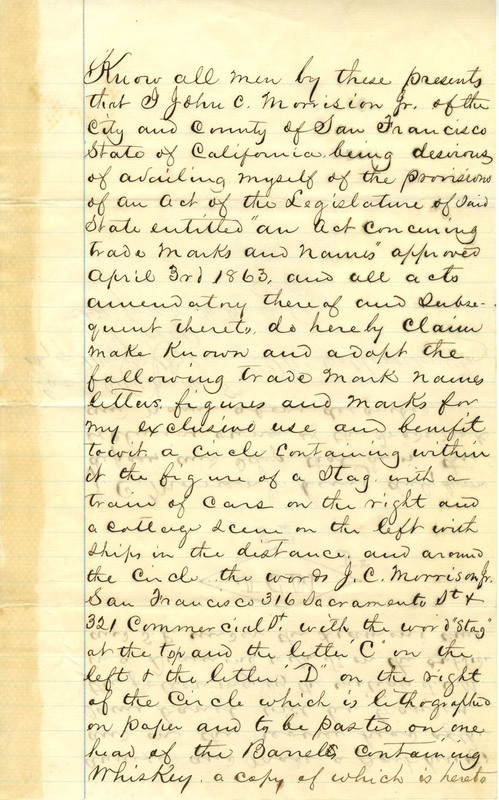 Know all men by these presents
that I John C. Morrision Jr. of the
City and County of San Francisco
State of California being desirous
of availing myself of the provisions
of an Act of the Legislature of Said
State entitled "an Act concerning
trade Marks and Names" approved
April 3rd 1863, and all acts
amendatory thereof and Subse-
quent thereto, do hereby Claim
make Known and adopt the
following trade Mark Names
letters, figures and Marks for
my exclusive use and benefit
towit, a Circle Containing within
it the figure of a Stag, with a
train of Cars on the right and
a cottage scene on the left with
Ships in the distance, and around
the Circle the words J. C. Morrison Jr.
San Francisco 316 Sacramento St &
321 Commercial St. with the word "Stag"
at the top and the letter "C" on the
left & the letter "D" on the right
of the Circle which is lithographed
on paper and to be pasted on one
head of the Barrells containing
Whiskey. a copy of which is hereto